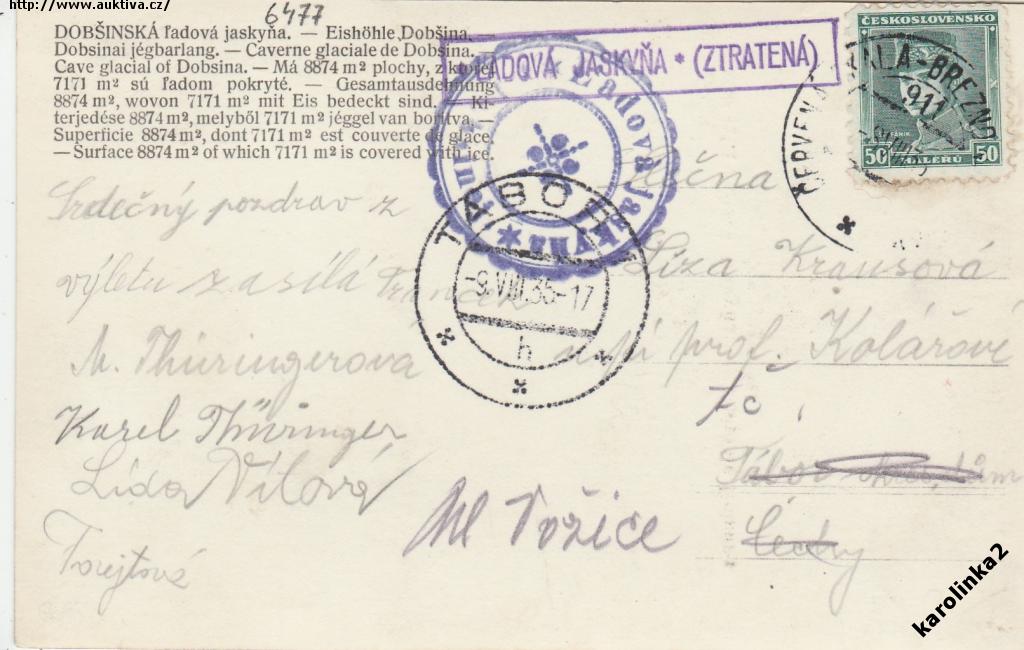 http://www.auktiva.cz/
6477
DOBŠINSKÁ ľadová jaskyňa. — Eishöhle Dobšina. —
Dobsinai jégbarlang. — Caverne glaciale de Dobsina. —
Cave glacial of Dobsina. — Má 8874 m² plochy, z ktorej
7171 m² sú ľadom pokryté. — Gesamtausdehnung
8874 m², wovon 7171 m² mit Eis bedeckt sind. — Ki-
terjedése 8874 m², melyből 7171 m² jéggel van borítva. —
Superficie 8874 m², dont 7171 m² est couverte de glace.
— Surface 8874 m² of which 7171 m² is covered with ice.
ĽADOVÁ JASKYŇA * (ZTRATENÁ)
Ľadová jaskyňa
ČESKOSLOVENSKO
50 HALÉŘŮ 50
ČERVENÁ SKALA-BREZNO
911
TÁBOR
-9.VIII.35-17
h
Srdečný pozdrav z
výletu zasílá
M. Thüringerová
Karel Thüringer
Lída Vítová
Forejtová
Slečna
Líza Krausová
prof. Kolářové
Tábor
Čechy
Ml Vožice
karolinka2